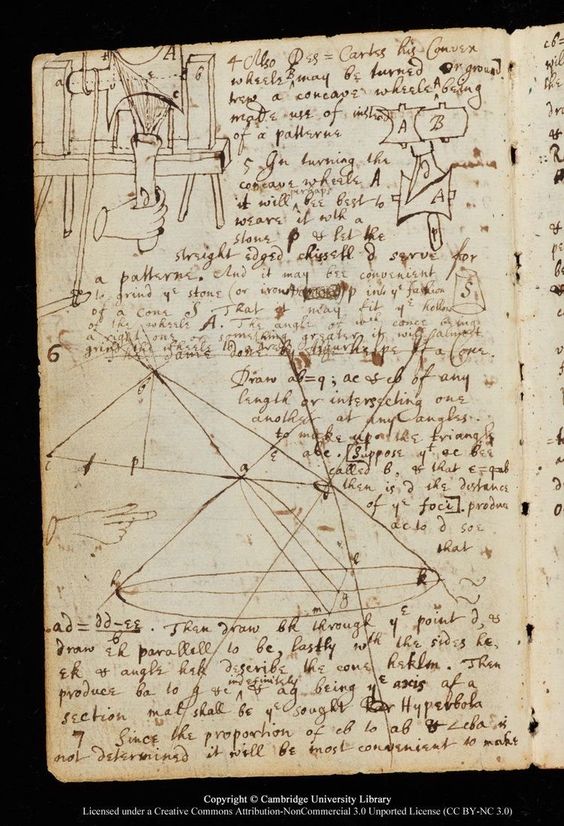 4 Also Des=Cartes his Convex
wheele B may be turned or ground
trew a concave wheele A being
made use of instead
of a patterne
5 In turning the
concave wheele A
it will perhaps bee best to
weare it with a
stone p & let the
streight edged chissell d serve for
a patterne. And it may bee convenient
to grind ye stone (or iron) p into ye fashion
of a cone S. That it may fit ye hollow
of the wheele A. The angle of wch cone being
a right one or something greater it will almost
6
Draw ab=q; ac & cb of any
length or intersecting one
another at any angles.
to make up the triangle
abc. [Suppose yt ac bee
called b, & that e=qab
then is d the distance
of ye foci]. produce
ac to d soe
that
ad = dd-ee/b. Then draw bk through ye point d, &
draw ek parallell to be, lastly wth the sides he,
ek & angle hek describe the cone heklm. Then
produce ba to g & e indefinitely & ag being ye axis of a
section mal shall be ye sought Hyperbola
7 Since the proportion of cb to ab & <cba is
not determined it will be most convenient to make
a
b
c
A
B
A
p
S
b
c
p
a
d
h
k
l
g
m
Copyright © Cambridge University Library
Licensed under a Creative Commons Attribution-NonCommercial 3.0 Unported License (CC BY-NC 3.0)